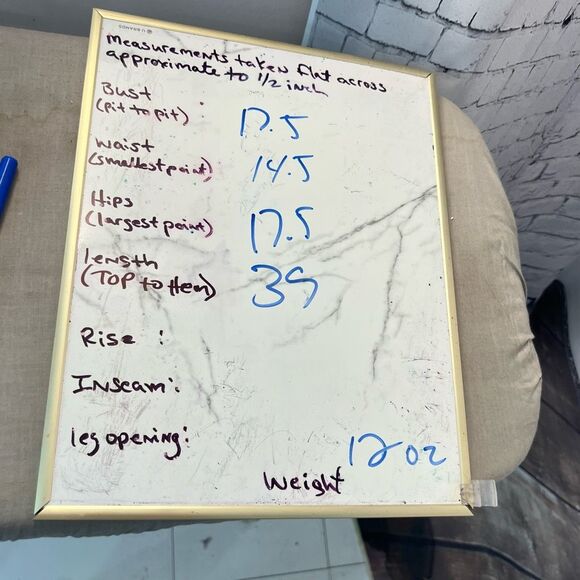 U BRANDS
measurements taken flat across
approximate to 1/2 inch
Bust
(pit to pit) :
17.5
waist
(smallest point)
14.5
Hips
(largest point)
17.5
length
(TOP to Hem)
39
Rise :
Inseam :
leg opening :
12 oz
Weight